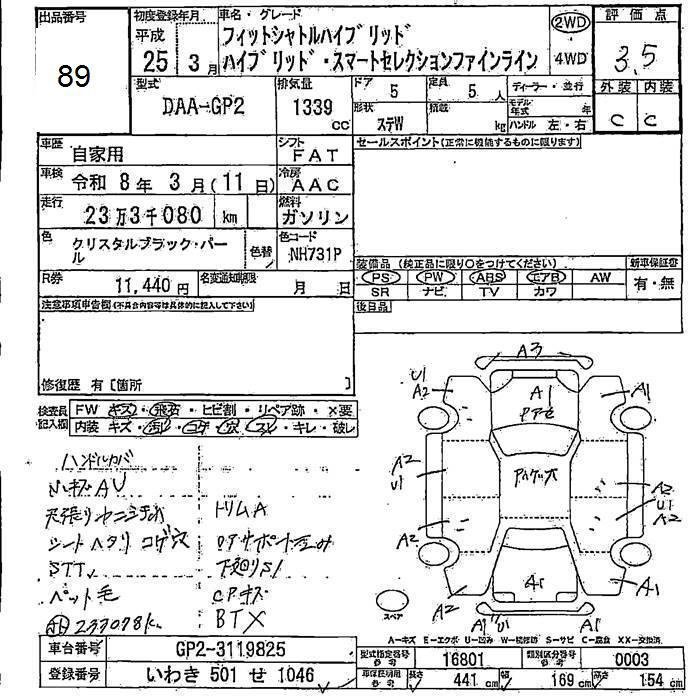 出品番号
89
初度登録年月
平成
25年 3月
車名・グレード
フィットシャトルハイブリッド
ハイブリッド・スマートセレクションファインライン
2WD
4WD
評価点
3.5
外装 内装
C C
型式
DAA-GP2
排気量
1339
cc
ドア
5
定員
5人
ディーラー・並行
形状
ステW
積載
kg
モデル年式 年
ハンドル 左・右
車歴
自家用
シフト
FAT
車検
令和 8年 3月(11日)
冷房
AAC
走行
23万3千080 km
燃料
ガソリン
色
クリスタルブラック・パール
色替
色コード
NH731P
R券
11,440円
名変通知期限
月 日
セールスポイント(正常に機能するものに限ります)
装備品 (純正品に限り○をつけてください)
新車保証書
PS PW ABS エアB AW
有・無
SR ナビ TV カワ
後日品
注意事項申告欄(不具合内容等は具体的に記入して下さい)
修復歴 有 [箇所 ]
検査員記入欄
FW キズ・飛石・ヒビ割・リペア跡・×要
内装 キズ・コゲ・穴・スレ・キレ・破レ
ハンドルカバ
天張リヤニシミ
トリムA
シートヘタリ コゲ穴
STV
下廻りS1
ペット毛
CPキズ
233078k
BTX
A3
U1
A2
A1
A1
A2
U1
A2
U1
A2
A2
A2
A1
A1
A1
U1
A1
スペア
A-キズ E-エクボ U-凹み W-補修跡 S-サビ C-腐食 XX-交換済
車台番号
GP2-3119825
型式指定番号
参考
16801
類別区分番号
参考
0003
登録番号
いわき 501 せ 1046
車保証明用
参考
長さ 441cm
幅 169cm
高さ 154cm